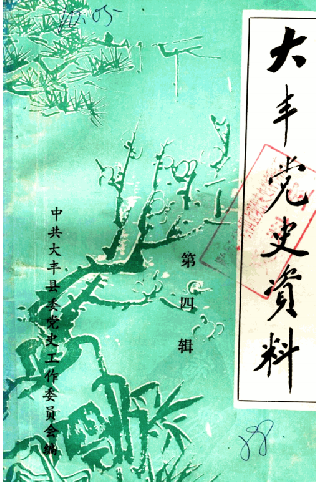 大丰党史資料
第四辑
中共大丰县委党史工作委员会编